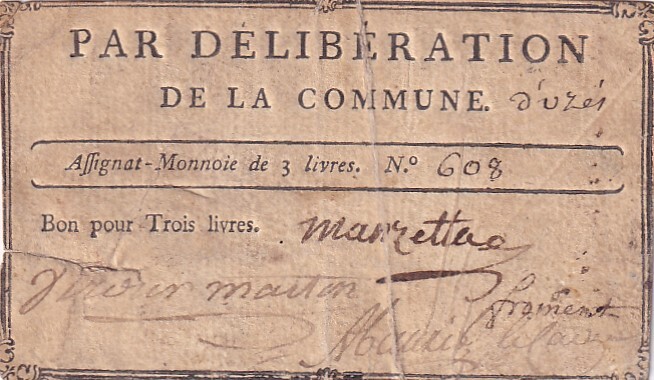 PAR DÉLIBÉRATION
DE LA COMMUNE. d'uzés
Aſſignat-Monnoie de 3 livres. N.º 608
Bon pour Trois livres.
martin
froment